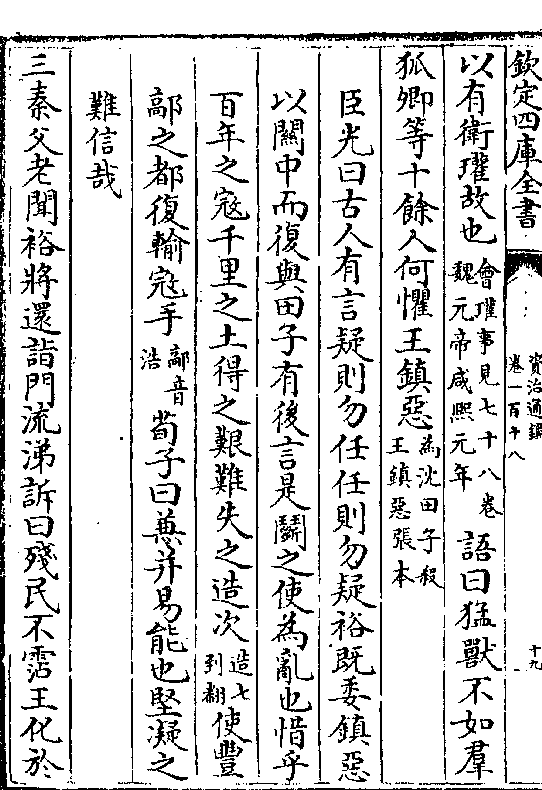 欽定四庫全書
資治通鑑
卷一百十八
十九
以有衛瓘故也會瓘事見七十八卷魏元帝咸熙元年語曰猛獸不如羣
狐卿等十餘人何懼王鎮惡為沈田子殺王鎮惡張本
臣光曰古人有言疑則勿任任則勿疑裕既委鎮惡
以關中而復與田子有後言是鬬之使為亂也惜乎
百年之寇千里之土得之艱難失之造次造七到翻使豐
鄗之都復輸寇手鄗音浩荀子曰兼并易能也堅凝之
難信哉
三秦父老聞裕將還詣門流涕訴曰殘民不霑王化於